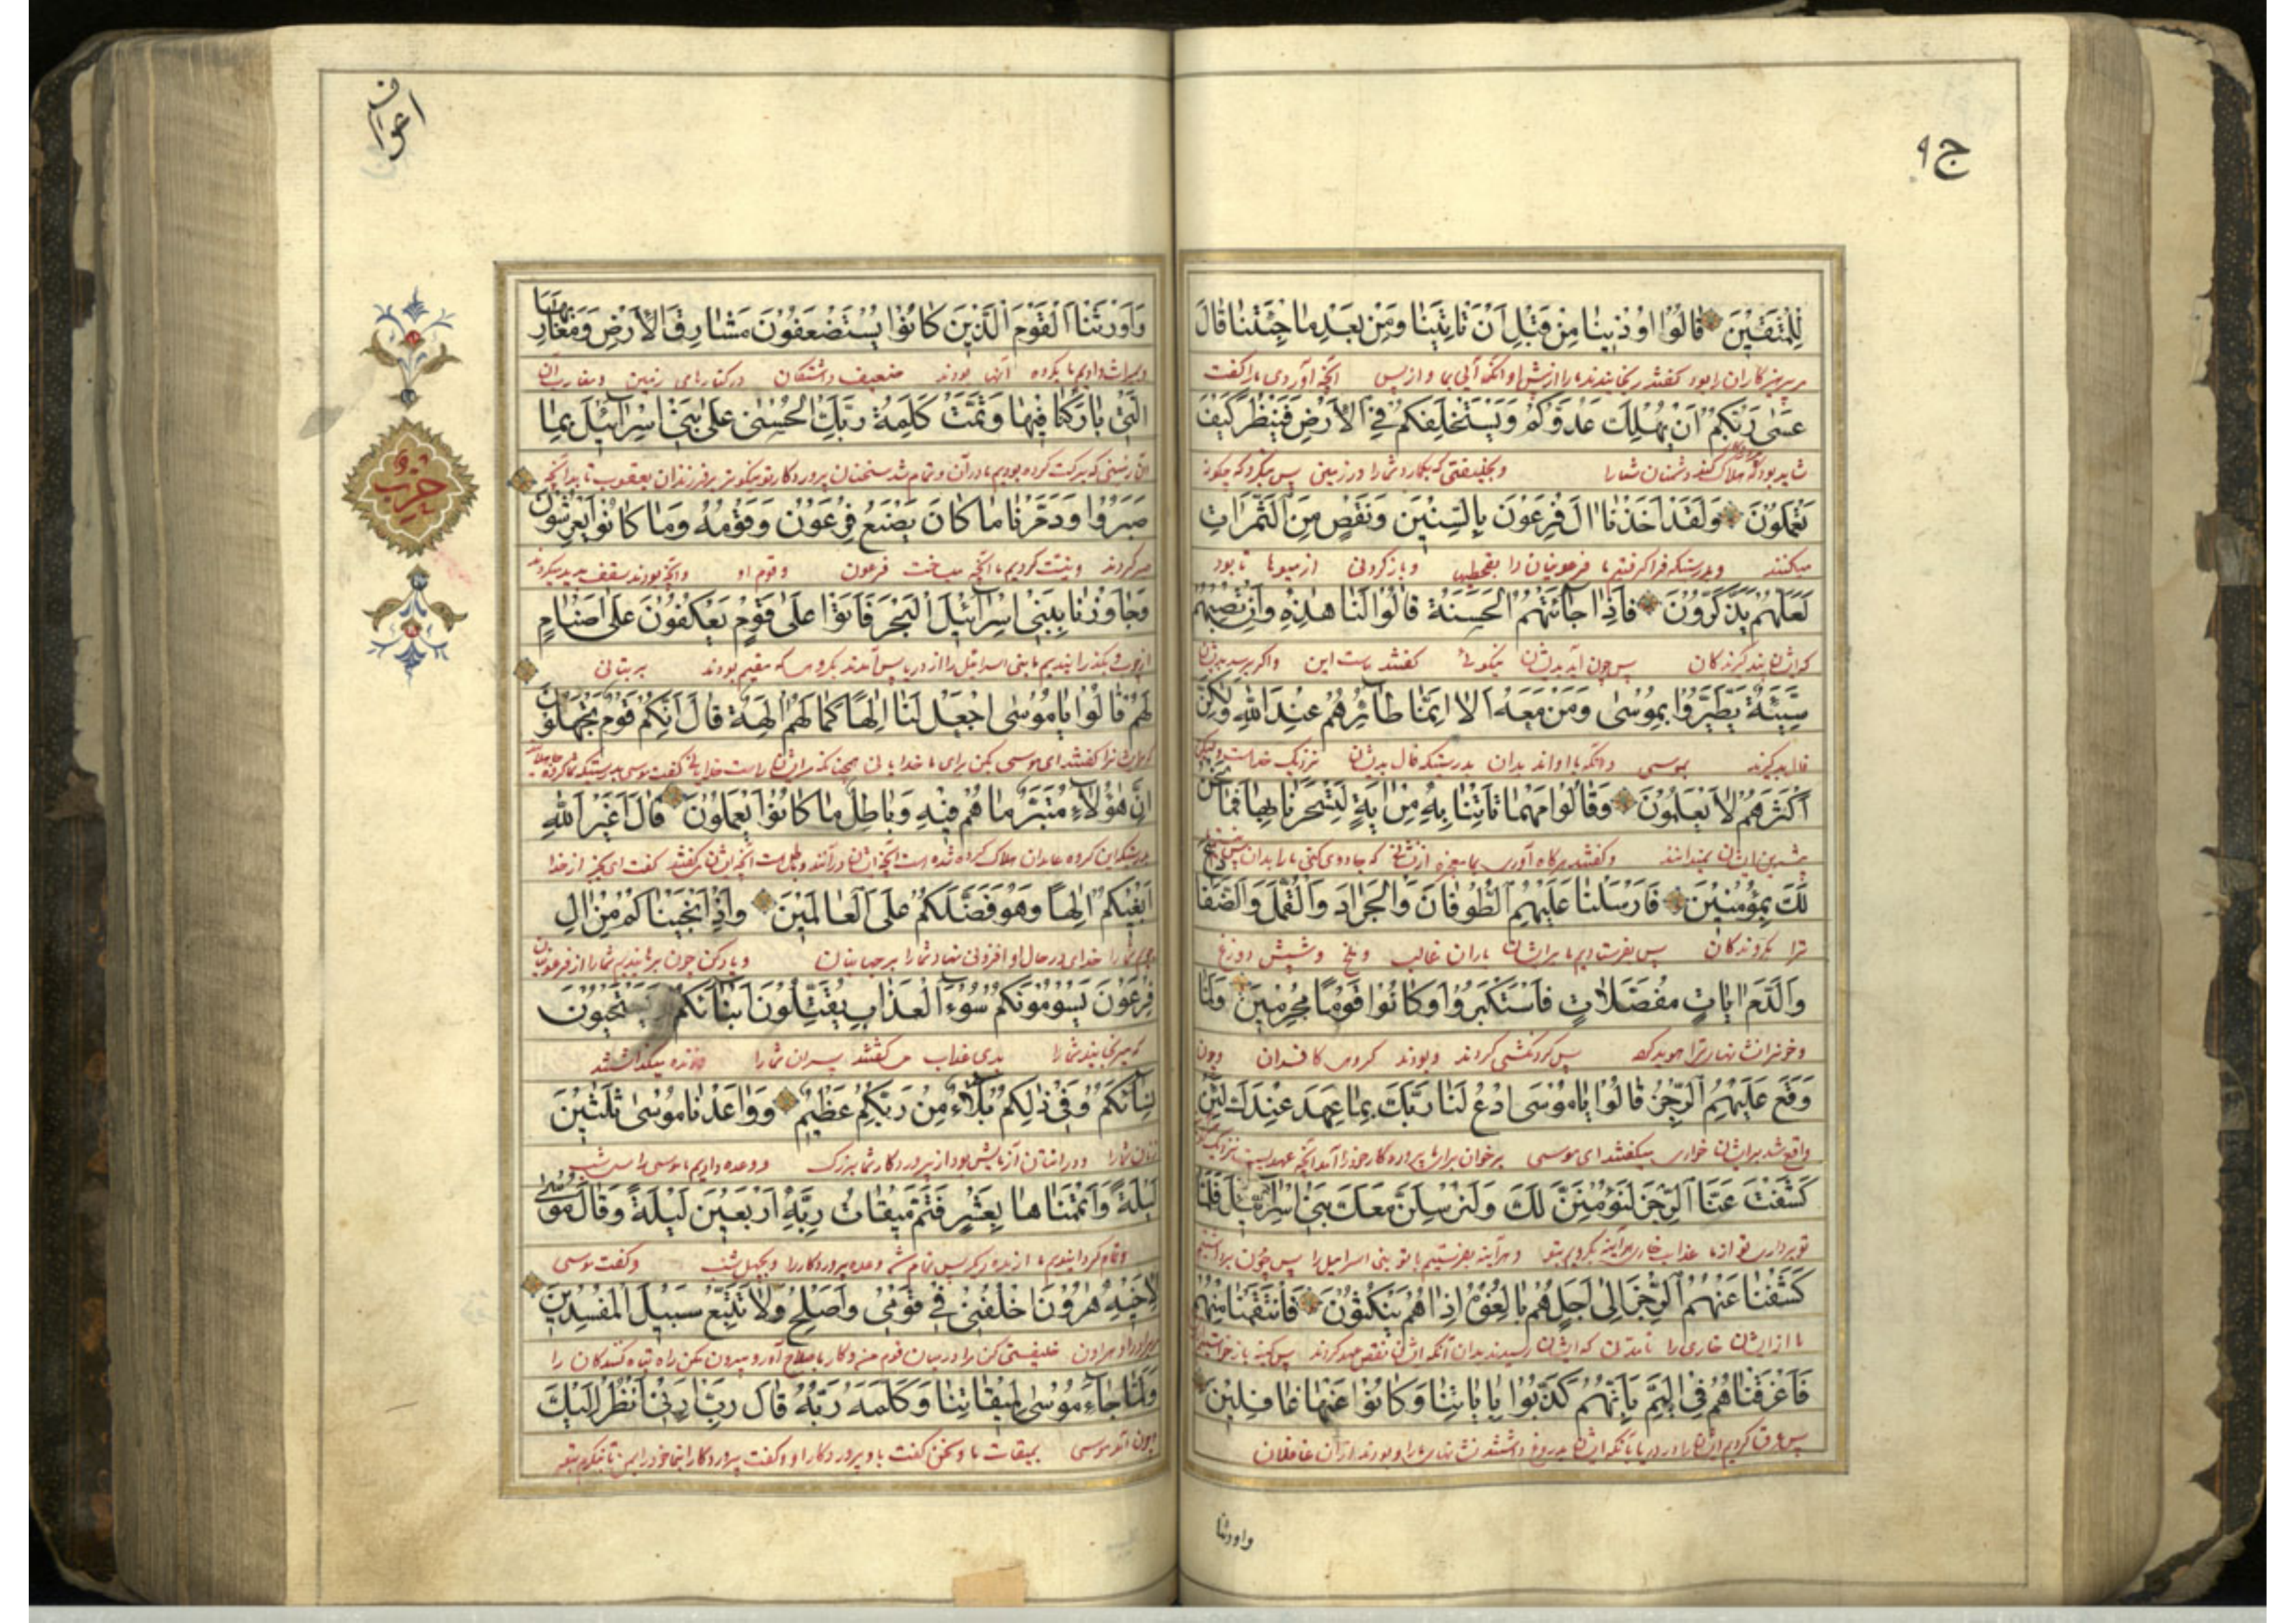 ج۹
للمتقين قالوا اوذينا من قبل ان تاتينا ومن بعد ما جئتنا قال
مر پرهیزکاران را بود کفتند رنجانیده شدیم ما از پیش او آنکه آیی بما و از پس آنچه آوردی ما را کفت
عسى ربكم ان يهلك عدوكم ويستخلفكم في الارض فينظر كيف
شاید بود که هلاک کند دشمنان شما را و بخلیفتی بکمارد شما را در زمین پس بنکرد که چکونه
تعملون ولقد اخذنا ال فرعون بالسنين ونقص من الثمرات
میکنند و بدرستیکه فرا کرفتیم ما فرعونیان را بقحطیها و باز کردنی از میوها تا بود
لعلهم يذكرون فاذا جائتهم الحسنة قالوا لنا هذه وان تصبهم
که ایشان پند کیرندکان پس چون آید بدیشان نیکوئی کفتند ماست این و اکر برسد بدیشان
سيئة يطيروا بموسى ومن معه الا انما طائرهم عند الله ولكن
فال بد کیرند بموسی و آنکه با او اند بدان بدرستیکه فال بدیشان نزدیک خداست ولیکن
اكثرهم لا يعلمون وقالوا مهما تاتنا به من اية لتسحرنا بها فما نحن
بیشترین ایشان نمیدانند و کفتند هرکاه آوری بما معجزه از نشانی که جادوی کنی ما را بدان پس نیستیم
لك بمؤمنين فارسلنا عليهم الطوفان والجراد والقمل والضفادع
ترا بکروندکان پس بفرستادیم ما بر ایشان باران غالب و ملخ و شپش و وزغ
والدم ايات مفصلات فاستكبروا وكانوا قوما مجرمين ولما
پس کردنکشی کردند و بودند کروهی کافران و چون
وقع عليهم الرجز قالوا يا موسى ادع لنا ربك بما عهد عندك لئن
واقع شد بر ایشان خواری میکفتند ای موسی بخوان برای ما پروردکار خود را
كشفت عنا الرجز لنؤمنن لك ولنرسلن معك بني اسرائيل فلما
تو برداری تو از ما عذاب خاری هر آینه بکرویم بتو و هر آینه بفرستیم با تو بنی اسرائیل را پس چون برداشتیم
كشفنا عنهم الرجز الى اجل هم بالغوه اذا هم ينكثون فانتقمنا منهم
ما از ایشان خاری را تا مدتی که ایشان رسیدند بدان آنکه ایشان نقض عهد کردند پس کینه باز خواستیم
فاغرقناهم في اليم بانهم كذبوا باياتنا وكانوا عنها غافلين
پس غرق کردیم ایشان را در دریا بآنکه ایشان بدروغ داشتند نشانهای ما را و بودند از آن غافلان
واورثنا
اعراف
واورثنا القوم الذين كانوا يستضعفون مشارق الارض ومغاربها
و میراث دادیم ما بکروه آنها بودند ضعیف داشتکان در کنارهای زمین و مغارب آن
التي باركنا فيها وتمت كلمة ربك الحسنى على بني اسرائيل بما
آن زمینی که برکت کرده بودیم ما در آن و تمام شد سخنان پروردکار تو نیکوتر بر فرزندان یعقوب تا بدآنچه
صبروا ودمرنا ما كان يصنع فرعون وقومه وما كانوا يعرشون
صبر کردند و نیست کردیم ما آنچه میساخت فرعون و قوم او و آنچه بودند سقف پدید میکردند
وجاوزنا ببني اسرائيل البحر فاتوا على قوم يعكفون على اصنام
بکذرانیدیم ما بنی اسرائیل را از دریا پس آمدند بکروهی که مقیم بودند بر بتانی
لهم قالوا يا موسى اجعل لنا الها كما لهم الهة قال انكم قوم تجهلون
کفتند ای موسی بکن برای ما خدایانی همچنانکه مر ایشان راست خدایانی کفت موسی بدرستیکه شما کروه جاهلانید
ان هؤلاء متبر ما هم فيه وباطل ما كانوا يعملون قال اغير الله
بدرستیکه این کروه عابدان هلاک کرده شده است آنچه ایشان در آنند و باطل است آنچه ایشان میکفتند کفت ای بجز از خدا
ابغيكم الها وهو فضلكم على العالمين واذ انجيناكم من ال
شما را خدای در حال او افزونی نهاد شما را بر جهانیان و یاد کن چون برهانیدیم شما را از فرعونیان
فرعون يسومونكم سوء العذاب يقتلون ابنائكم ويستحيون
که میرنجانیدند شما را بدی عذاب میکشتند پسران شما را و زنده میکذاشتند
نسائكم وفي ذلكم بلاء من ربكم عظيم وواعدنا موسى ثلثين
زنان شما را و در اینتان آزمایش بود از پروردکار شما بزرک و وعده دادیم ما موسی را سی شب
ليلة واتممناها بعشر فتم ميقات ربه اربعين ليلة وقال موسى
و تمام کردانیدیم ما از ده دیکر پس تمام شد وعده پروردکار را و بچهل شب و کفت موسی
لاخيه هرون اخلفني في قومي واصلح ولا تتبع سبيل المفسدين
مر برادر او هرون خلیفتی کن مرا در میان قوم من و کار باصلاح آور و پیروی مکن راه تباه کنندکان را
ولما جاء موسى لميقاتنا وكلمه ربه قال رب ارني انظر اليك
چون آمد موسی بمیقات ما و سخن کفت با او پروردکار او و کفت پروردکارا بنما خود را بمن تا بنکرم بتو
حزب